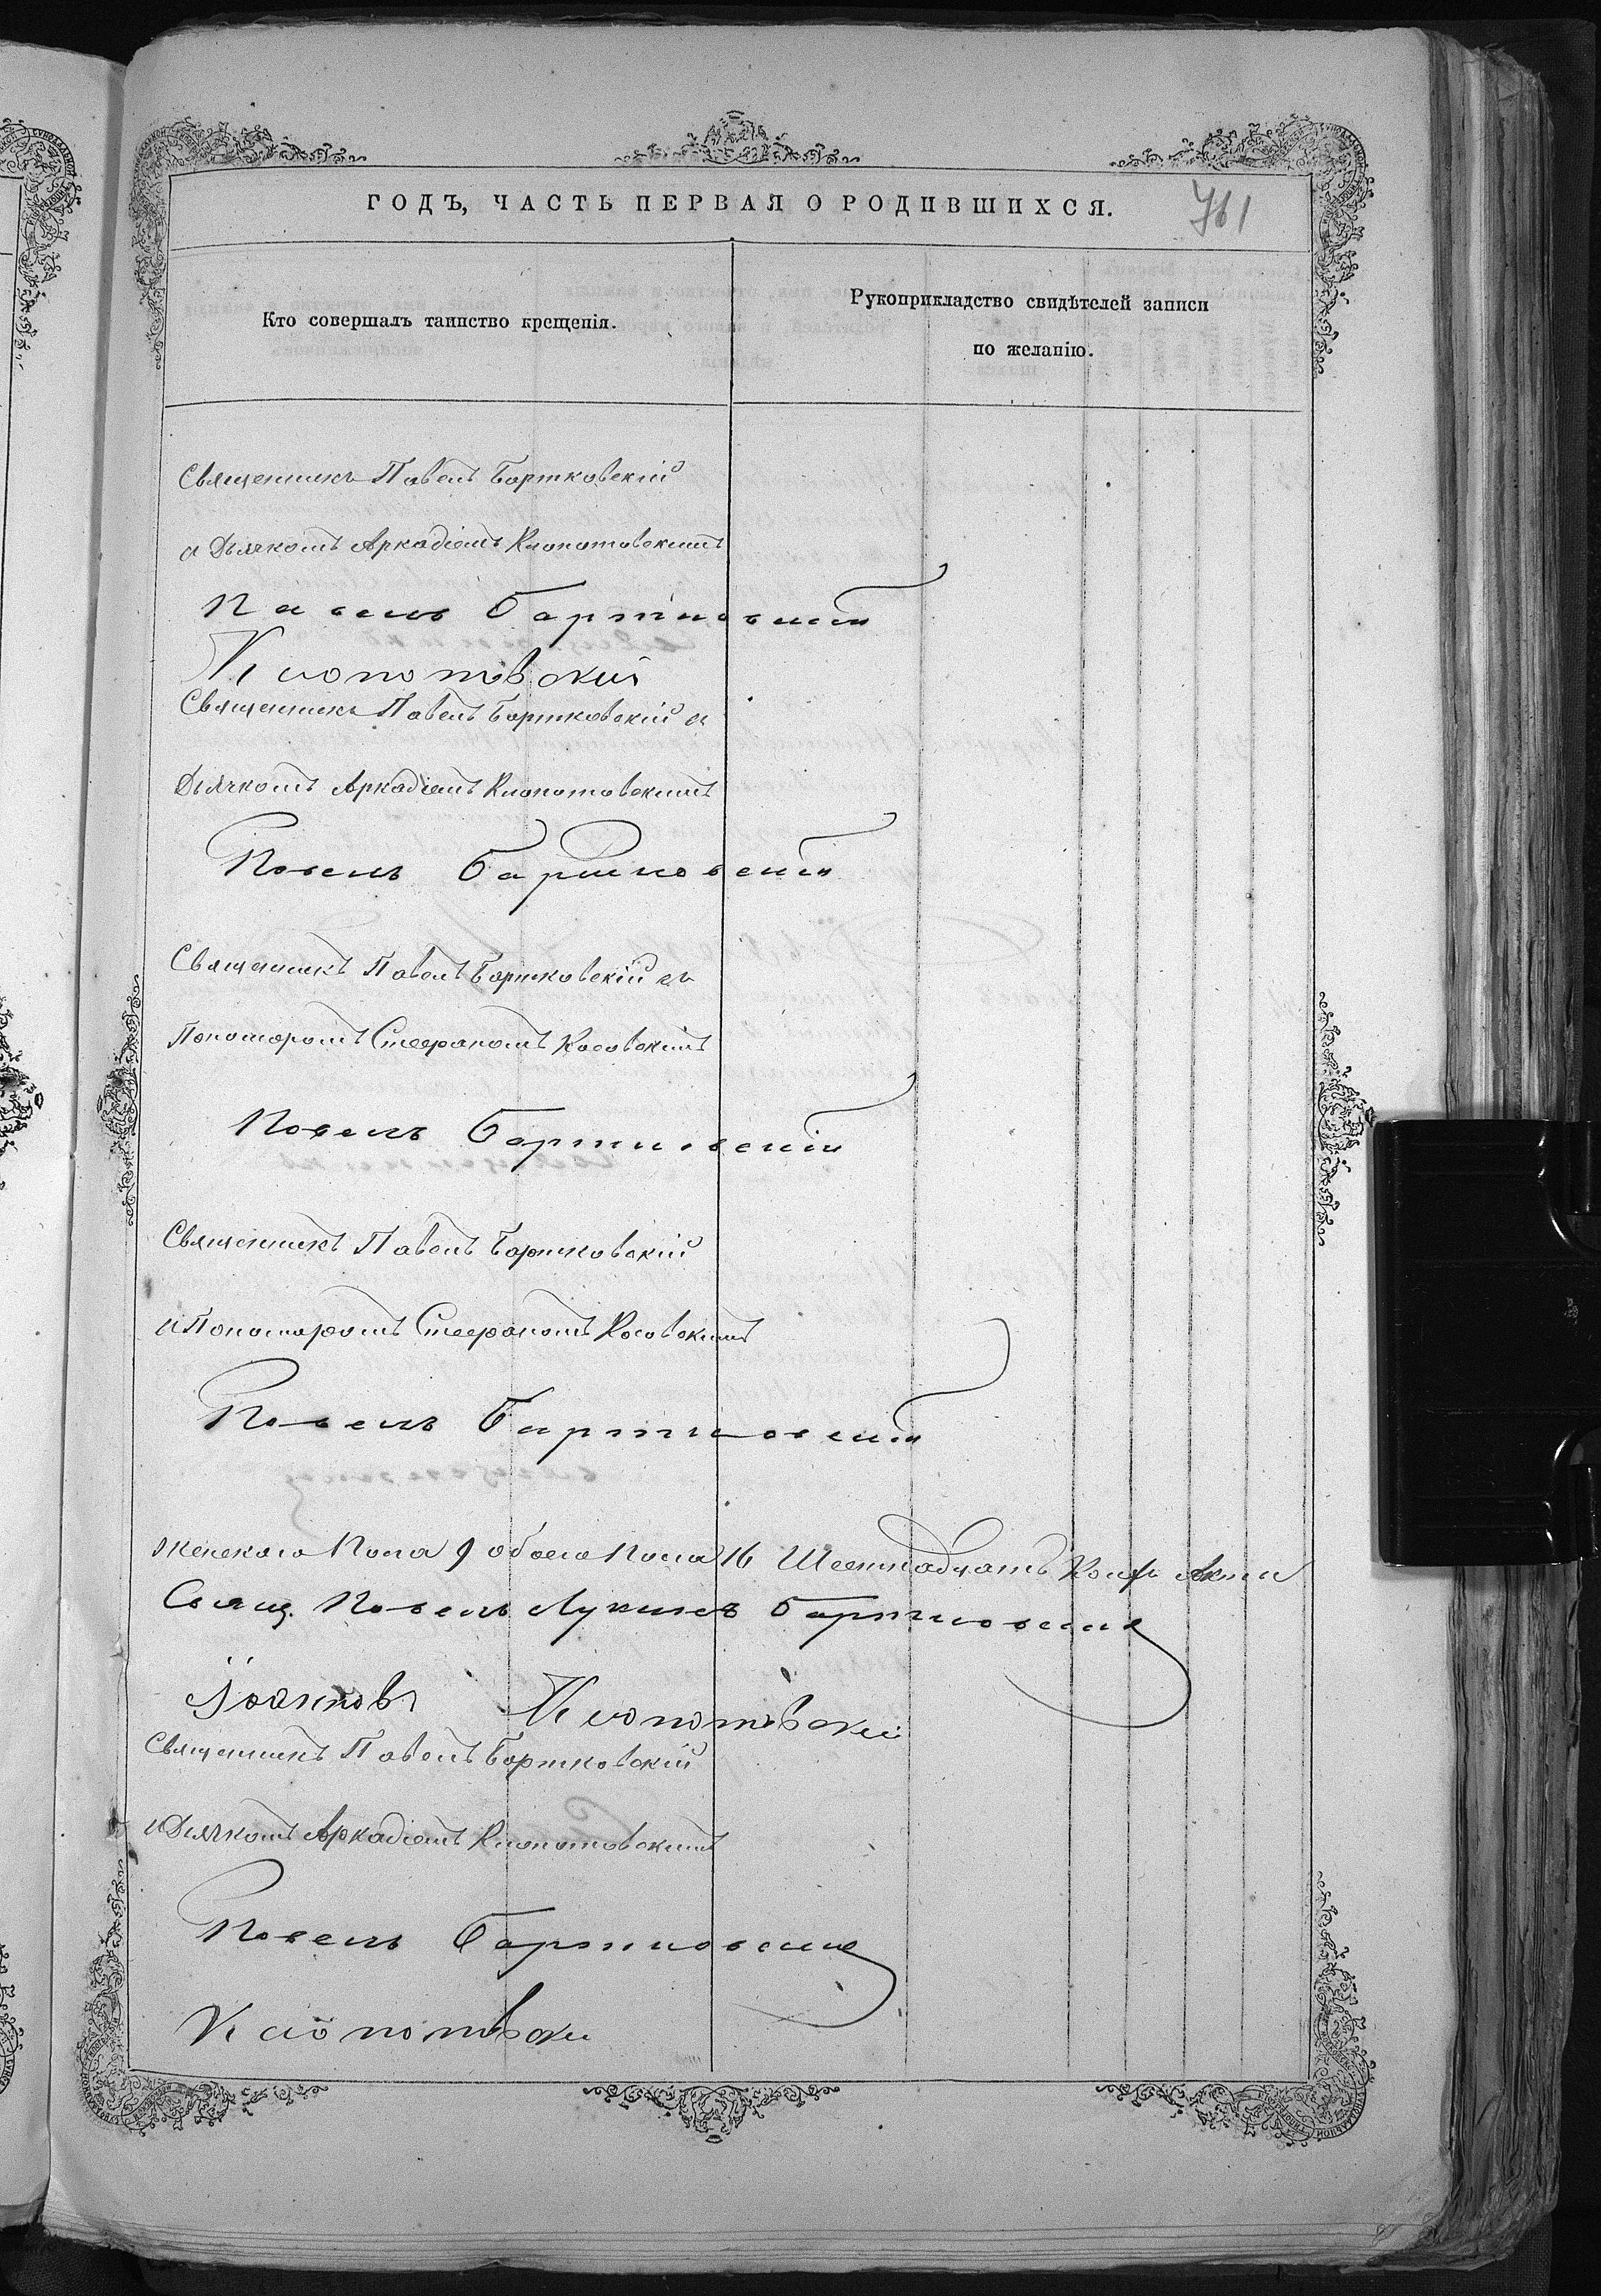 ГОДЪ, ЧАСТЬ ПЕРВАЯ О РОДИВШИХСЯ.
761
Кто совершалъ таинство крещенія.
Рукоприкладство свидѣтелей записи
по желанію.
Священникъ Павелъ Бартковскій
и Дьячкомъ Аркадіемъ Клопотовскимъ
Павелъ Бартковскій
Клопотовскій
Священникъ Павелъ Бартковскій и
Дьячкомъ Аркадіемъ Клопотовскимъ
Павелъ Бартковскій
Священникъ Павелъ Бартковскій съ
Пономаромъ Стефаномъ Косовскимъ
Павелъ Бартковскій
Священникъ Павелъ Бартковскій
и Пономаромъ Стефаномъ Косовскимъ
Павелъ Бартковскій
женскаго Пола 9 обоего Пола 16 Шестнадчать
Свящ. Павелъ Лукичевъ Бартковскій
Клопотовскій
Священникъ Павелъ Бартковскій
и Дьячкомъ Аркадіемъ Клопотовскимъ
Павелъ Бартковскій
Клопотовски